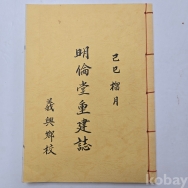 己巳榴月
明倫堂重建誌
義興鄕校
kobay